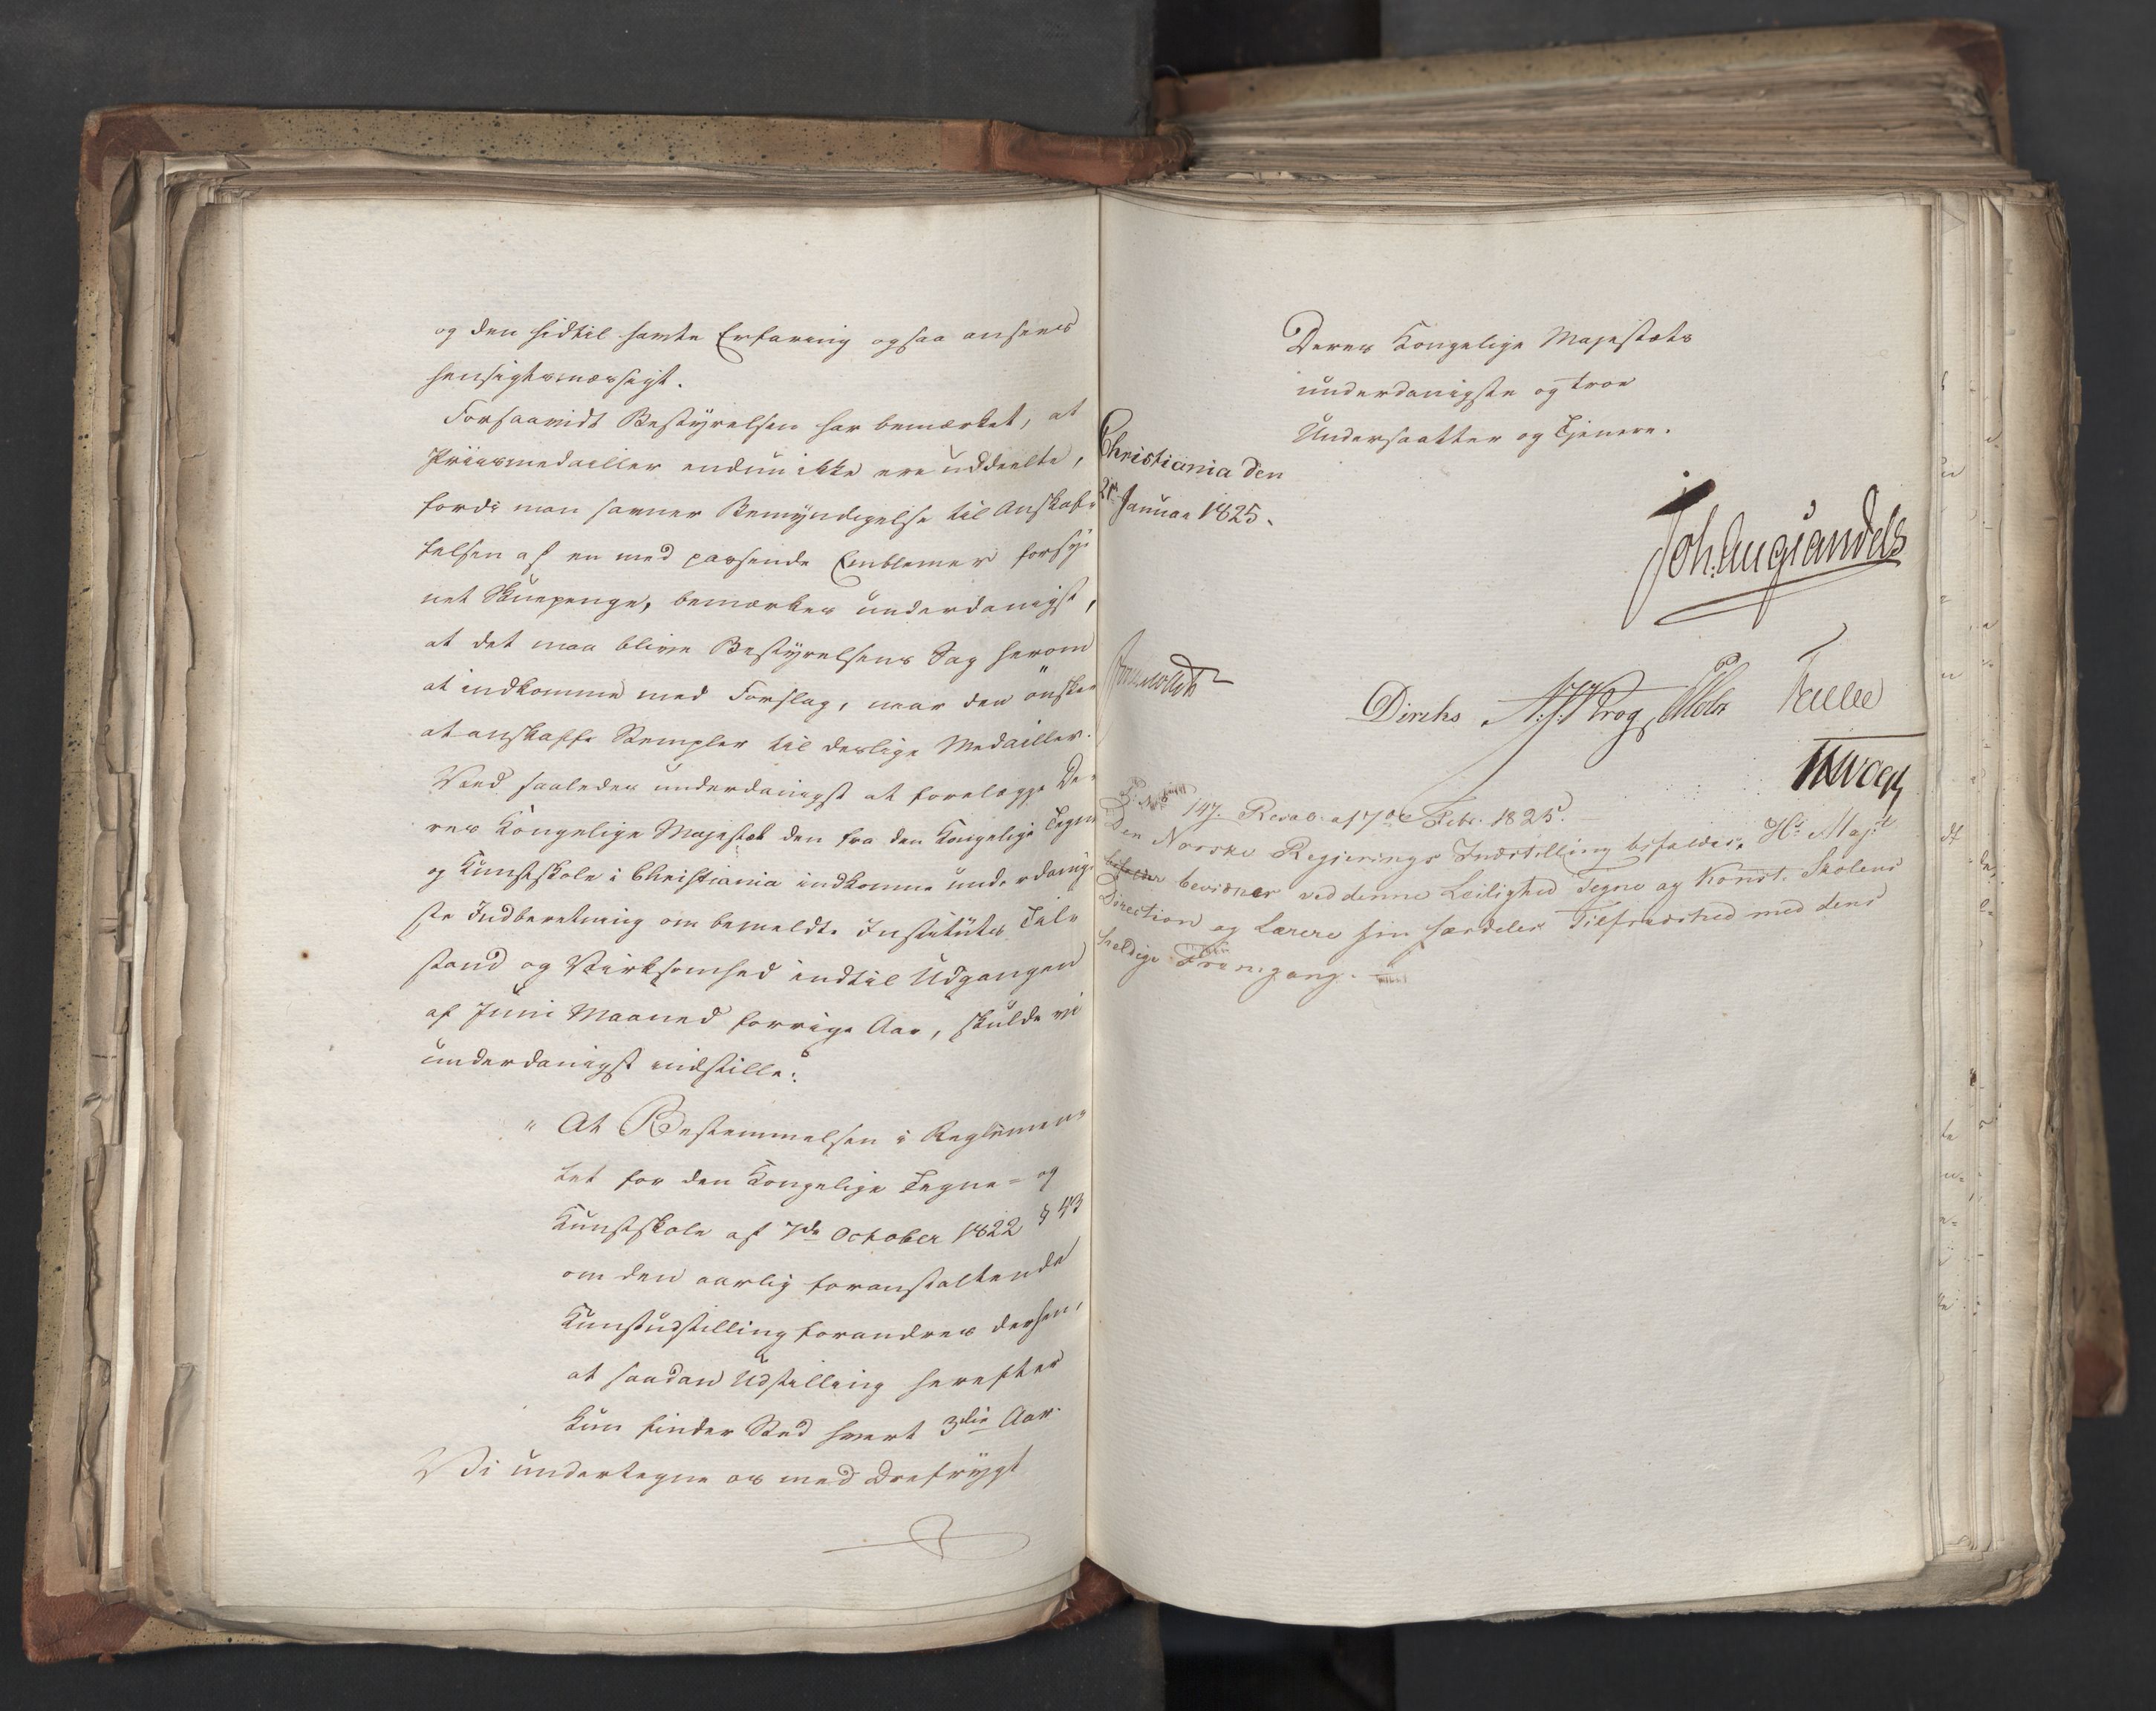 og den hidtil havte Erfaring ogsaa ansees
hensigtsmæssigt.
Forsaavidt Bestyrelsen har bemærket, at
Priismedailler endnu ikke ere uddeelte,
fordi man savner Bemyndigelse til Anskaf-
felsen af en med passende Emblemer forsy-
net Skuepenge, bemærkes underdanigst,
at det maa blive Bestyrelsens Sag herom
at indkomme med Forslag, naar den önsker
at anskaffe Stempler til deslige Medailler.
Ved saaledes underdanigst at forelægge De-
res Kongelige Majestæt den fra den Kongelige Tegne
og Kunstskole i Christiania indkomne underdanig-
ste Indberetning om bemeldte Instituts Til-
stand og Virksomhed indtil Udgangen
af Juni Maaned forrige Aar, skulde vi
underdanigst indstille:
" At Bestemmelsen i Reglemen-
tet for den Kongelige Tegne- og
Kunstskole af 7de October 1822 § 43
om den aarlig foranstaltende
Kunstudstilling forandres derhen,
at saadan Udstilling herefter
kun finder Sted hvert 3die Aar.
Vi undertegne os med Dyrefrygt
Deres Kongelige Majestæts
underdanigste og troe
Undersaatter og Tjenere.
Christiania den
21 Januar 1825.
Joh: Aug: Sandels
Diriks
Krog
Treschow
No 147. Resol: af 7de Febr. 1825.
Den Norske Regjerings Indstilling bifaldes. Hs Majt
bifalder bevidner ved denne Leilighed Tegne og Konst-Skolens
Direction og Lærere sin særdeles Tilfredshed med dens
heldige Fremgang.